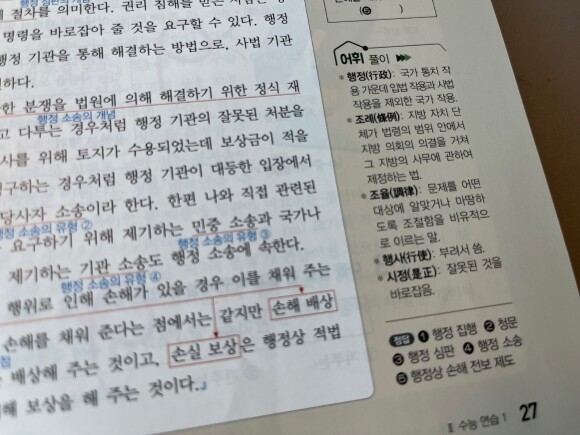 절차를 의미한다. 권리 침해를 받은
명령을 바로잡아 줄 것을 요구할 수 있다. 행정
행정 기관을 통해 해결하는 방법으로, 사법 기관
한 분쟁을 법원에 의해 해결하기 위한 정식 재
행정 소송의 개념
고 다투는 경우처럼 행정 기관의 잘못된 처분을
사를 위해 토지가 수용되었는데 보상금이 적을
구하는 경우처럼 행정 기관이 대등한 입장에서
당사자 소송이라 한다. 한편 나와 직접 관련된
행정 소송의 유형 ②
요구하기 위해 제기하는 민중 소송과 국가나
행정 소송의 유형 ③
제기하는 기관 소송도 행정 소송에 속한다.
행정 소송의 유형 ④
행위로 인해 손해가 있을 경우 이를 채워 주는
손해를 채워 준다는 점에서는 같지만 손해 배상
배상해 주는 것이고, 손실 보상은 행정상 적법
해 보상을 해 주는 것이다.」
(❺ )
어휘 풀이
행정(行政): 국가 통치 작
용 가운데 입법 작용과 사법
작용을 제외한 국가 작용.
조례(條例): 지방 자치 단
체가 법령의 범위 안에서
지방 의회의 의결을 거쳐
그 지방의 사무에 관하여
제정하는 법.
조율(調律): 문제를 어떤
대상에 알맞거나 마땅하
도록 조절함을 비유적으
로 이르는 말.
행사(行使): 부려서 씀.
시정(是正): 잘못된 것을
바로잡음.
정답 ❶ 행정 집행 ❷ 청문
❸ 행정 심판 ❹ 행정 소송
❺ 행정상 손해 전보 제도
Ⅱ 수능 연습 1 27